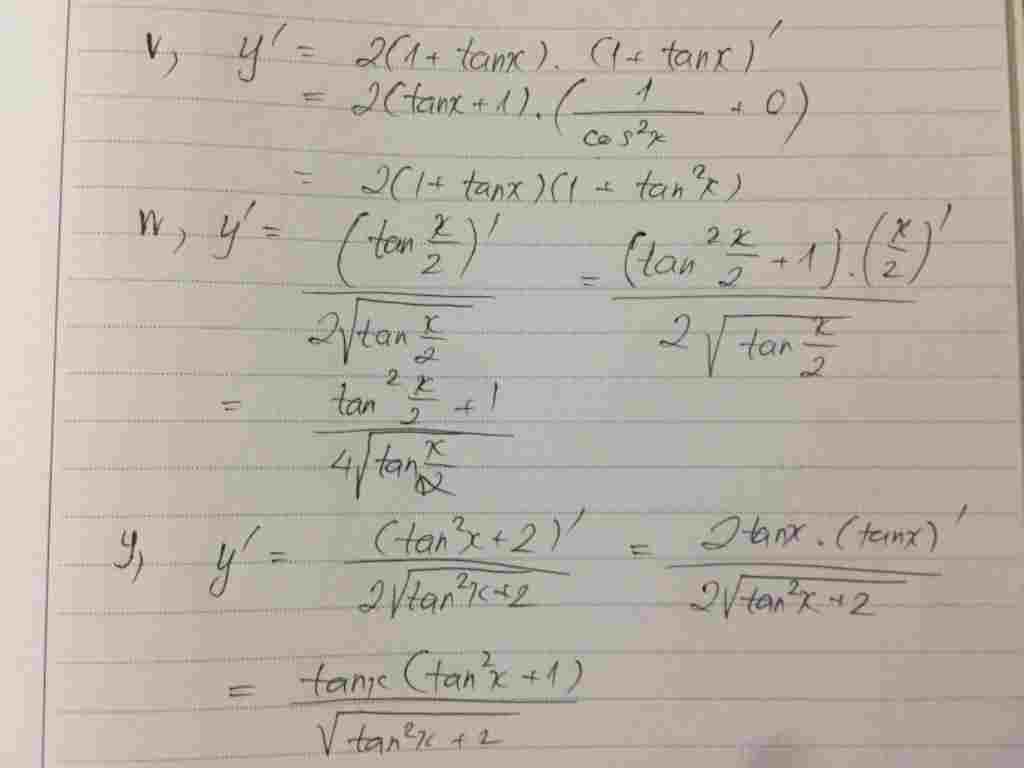 v, y' = 2(1 + tanx). (1 + tanx)'
= 2(tanx + 1).(1/cos²x + 0)
= 2(1 + tanx)(1 + tan²x)
w, y' = (tan x/2)' / 2√(tan x/2) = (tan² x/2 + 1).(x/2)' / 2√(tan x/2)
= tan² x/2 + 1 / 4√(tan x/2)
y, y' = (tan²x + 2)' / 2√(tan²x + 2) = 2tanx . (tanx)' / 2√(tan²x + 2)
= tanx (tan²x + 1) / √(tan²x + 2)